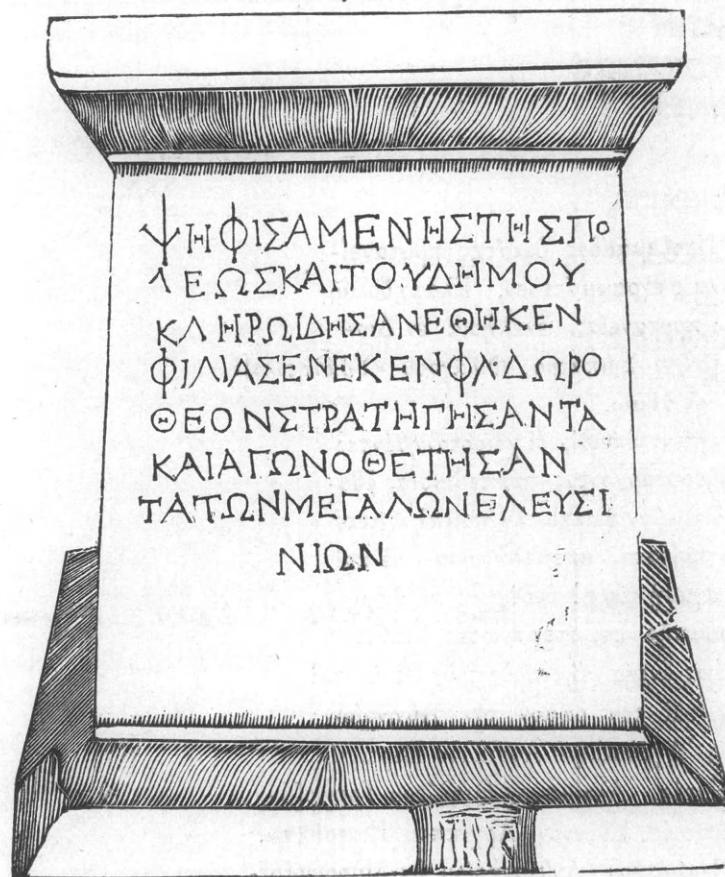 ΨΗΦΙΣΑΜΕΝΗΣΤΗΣΠΟ
ΛΕΩΣΚΑΙΤΟΥΔΗΜΟΥ
ΚΛΗΡΩΙΔΗΣΑΝΕΘΗΚΕΝ
ΦΙΛΙΑΣΕΝΕΚΕΝΦΛΔΩΡΟ
ΘΕΟΝΣΤΡΑΤΗΓΗΣΑΝΤΑ
ΚΑΙΑΓΩΝΟΘΕΤΗΣΑΝ
ΤΑΤΩΝΜΕΓΑΛΩΝΕΛΕΥΣΙ
ΝΙΩΝ